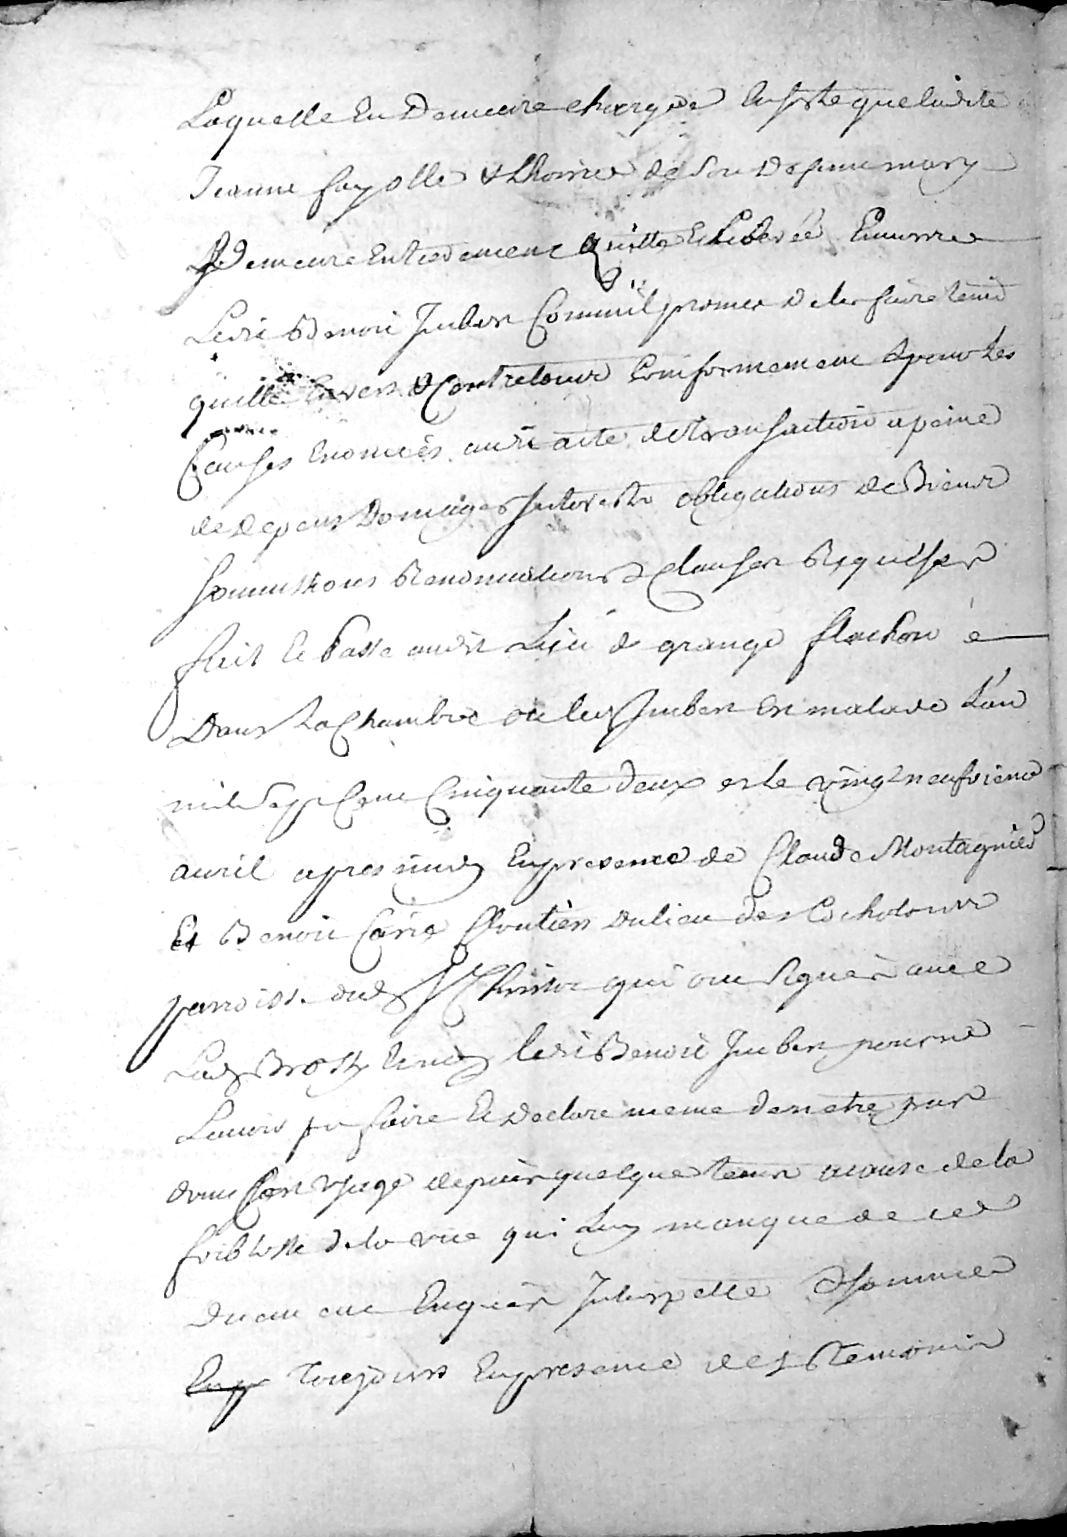 Laquelle En Demeure chargée Ensorte que ladite
Jeanne fayolle & Lhoirie de Son Defunt mary
Demeure Entierement Quitte Et Liberée Envers
Ledit Benoit Jmbert Comme il promet De les faire tenir
quitte Envers & Contre tous Conformement & pour Les
Causes Enoncées audit acte de transaction a peine
de Depens Domages Interests obligations de Biens
Soumissions Renonciations & clauses Requises
fait Et Passé audit Lieu de grange flachon e
Dans La Chambre ou led Jmbert Est malade L'an
mil Sept Cent Cinquante deux et le vingt neufvieme
avril apres midy En presence de Claude Montagnier
Et Benoit Cloutier Du lieu des
parroisse dud St Christo qui ont Signé avec
Ledit Benoit Jmbert pour ne
Lavoir pu faire Et Declaré meme den etre pas
dans Son Usage depuis quelque tems a cause de la
foiblesse de la vue qui Luy manque de ce
Duement Enquis Interpellé & Sommé
toujours En presence des Temoins